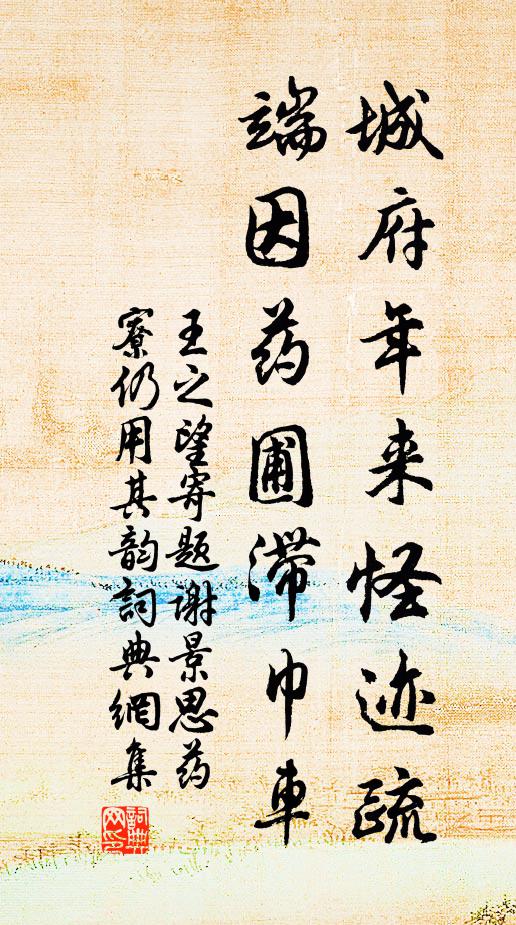 城府年来怪迹疏
端因药圃滞巾车
王之望寄题谢景思药
寮仍用其韵词典網集
詞典網印